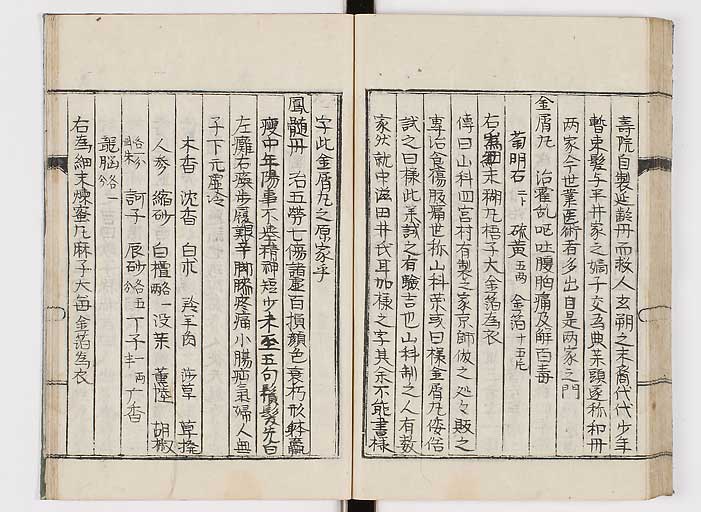 壽院自製延齡丹而救人玄朔之末裔代代少年
暫束髮与半井家之嫡子交為典茉頭逐称和丹
两家今世業医術者多出自是两家之門
金屑丸　治霍乱呕吐腹胸痛及解百毒
菊明石二下　硫黄五两　金箔十五片
右為細末糊丸梧子大金箔為衣
傳曰山科四宮村有製之家京師倣之処々販之
專治食傷肢痛世称山科茉或曰様金屑丸倭俗
試之曰様此茉試之有驗吉也山科制之人有数
家然就中滋田井氏耳加様之字其余不能書様
字此金屑丸之原家乎
鳳髓丹　治五勞七傷諸虚百損顔色衰朽形躰羸
瘦中年陽事不舉精神短少未至五旬鬚髮先白
左癱右瘓步履艱辛脚膝疼痛小腸疝氣婦人無
子下元虚冷
木香　沈香　白朮　羚羊肉　莎草　草撥
人参　縮砂　白檀略一　没茉　薰陸　胡椒
訶子　辰砂各五　丁子一两半　广香
龍脳各一
右為細末煉蜜丸麻子大每金箔為衣